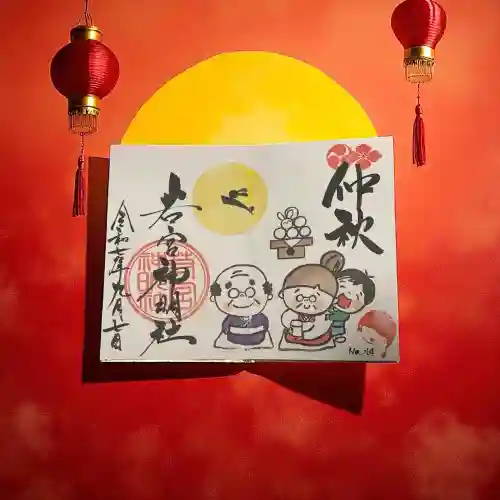 仲秋
若宮神明社
令和七年九月七日
No.14